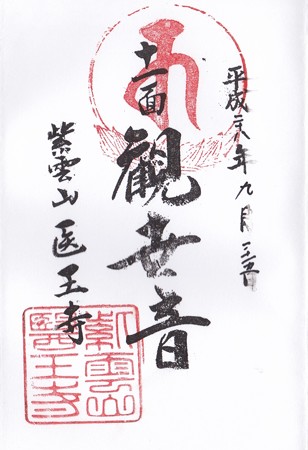 平成二十八年九月二十五日
十一面
観世音
紫雲山 医王寺
紫雲山
醫王寺